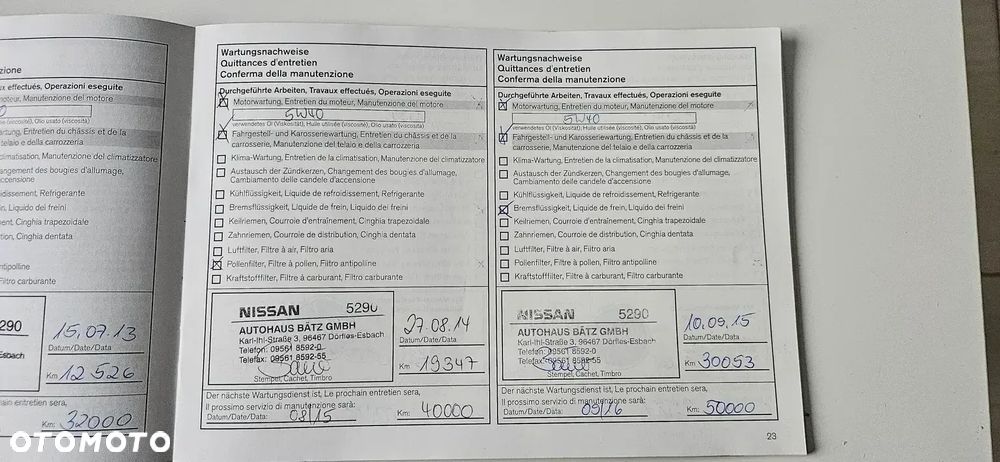 zione
ux effectués, Operazioni eseguite
moteur, Manutenzione del motore
(viscosité), Olio usato (viscosità)
Entretien du châssis et de la
telaio e della carrozzeria
climatisation, Manutenzione del climatizzatore
Changement des bougies d'allumage,
d'accensione
refroidissement, Refrigerante
frein, Liquido dei freini
Cinghia trapezoidale
Cinghia dentata
antipolline
Filtro carburante
5290
15.07.13
Datum/Date/Data
Esbach
Km 12 526
hain entretien sera,
Km: 32000
Wartungsnachweise
Quittances d'entretien
Conferma della manutenzione
Durchgeführte Arbeiten, Travaux effectués, Operazioni eseguite
Motorwartung, Entretien du moteur, Manutenzione del motore
5W40
verwendetes Öl (Viskosität), Huile utilisée (viscosité), Olio usato (viscosità)
Fahrgestell- und Karosseriewartung, Entretien du châssis et de la
carrosserie, Manutenzione del telaio e della carrozzeria
Klima-Wartung, Entretien de la climatisation, Manutenzione del climatizzatore
Austausch der Zündkerzen, Changement des bougies d'allumage,
Cambiamento delle candele d'accensione
Kühlflüssigkeit, Liquide de refroidissement, Refrigerante
Bremsflüssigkeit, Liquide de frein, Liquido dei freini
Keilriemen, Courroie d'entraînement, Cinghia trapezoidale
Zahnriemen, Courroie de distribution, Cinghia dentata
Luftfilter, Filtre à air, Filtro aria
Pollenfilter, Filtre à pollen, Filtro antipolline
Kraftstofffilter, Filtre à carburant, Filtro carburante
NISSAN 5290
AUTOHAUS BÄTZ GMBH
Karl-Ihl-Straße 3, 96467 Dörfles-Esbach
Telefon: 09561 8592-0
Telefax: 09561 8592-55
Stempel, Cachet, Timbro
27.08.14
Datum/Date/Data
Km 19347
Der nächste Wartungsdienst ist, Le prochain entretien sera,
Il prossimo servizio di manutenzione sarà:
Datum/Date/Data: 08/15 Km: 40000
Wartungsnachweise
Quittances d'entretien
Conferma della manutenzione
Durchgeführte Arbeiten, Travaux effectués, Operazioni eseguite
Motorwartung, Entretien du moteur, Manutenzione del motore
5W40
verwendetes Öl (Viskosität), Huile utilisée (viscosité), Olio usato (viscosità)
Fahrgestell- und Karosseriewartung, Entretien du châssis et de la
carrosserie, Manutenzione del telaio e della carrozzeria
Klima-Wartung, Entretien de la climatisation, Manutenzione del climatizzatore
Austausch der Zündkerzen, Changement des bougies d'allumage,
Cambiamento delle candele d'accensione
Kühlflüssigkeit, Liquide de refroidissement, Refrigerante
Bremsflüssigkeit, Liquide de frein, Liquido dei freini
Keilriemen, Courroie d'entraînement, Cinghia trapezoidale
Zahnriemen, Courroie de distribution, Cinghia dentata
Luftfilter, Filtre à air, Filtro aria
Pollenfilter, Filtre à pollen, Filtro antipolline
Kraftstofffilter, Filtre à carburant, Filtro carburante
NISSAN 5290
AUTOHAUS BÄTZ GMBH
Karl-Ihl-Straße 3, 96467 Dörfles-Esbach
Telefon: 09561 8592-0
Telefax: 09561 8592-55
Stempel, Cachet, Timbro
10.09.15
Datum/Date/Data
Km 30053
Der nächste Wartungsdienst ist, Le prochain entretien sera,
Il prossimo servizio di manutenzione sarà:
Datum/Date/Data: 09/16 Km: 50000
23
OTOMOTO